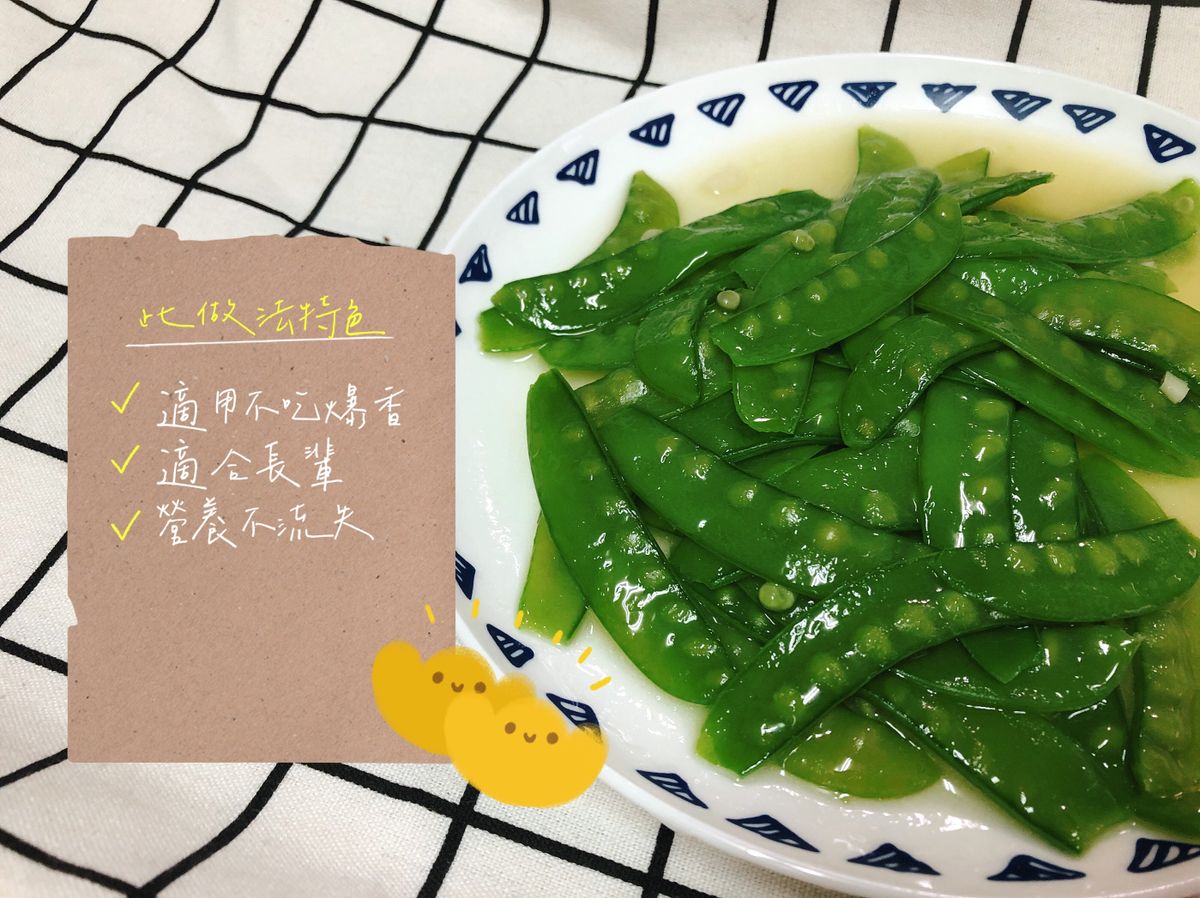 此做法特色
✓ 適用不吃爆香
✓ 適合長輩
✓ 營養不流失